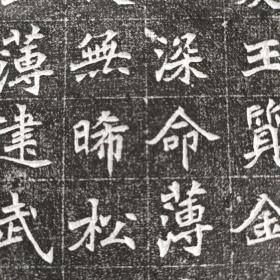 玉質金
深命薄
無晞松
薄建武